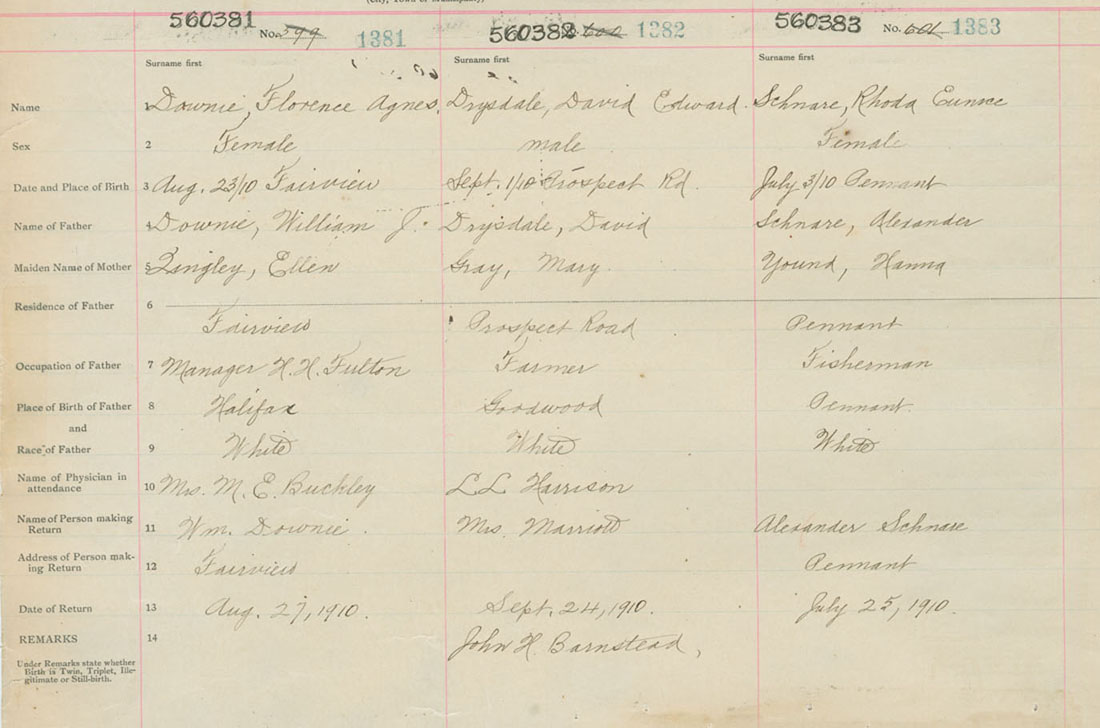 (City, Town or Municipality)
560381 No. 599 1381 560382 No. 600 1382 560383 No. 601 1383
Surname first Surname first Surname first
Name 1 Downie, Florence Agnes. Drysdale, David Edward. Schnare, Rhoda Eunice
Sex 2 Female male Female
Date and Place of Birth 3 Aug. 23/10 Fairview Sept. 1/10 Prospect Rd. July 3/10 Pennant
Name of Father 4 Downie, William J. Drysdale, David Schnare, Alexander
Maiden Name of Mother 5 Lingley, Ellen Gray, Mary. Yound, Hanna
Residence of Father 6
Fairview Prospect Road Pennant
Occupation of Father 7 Manager H. H. Fulton Farmer Fisherman
Place of Birth of Father 8 Halifax Goodwood Pennant.
and
Race of Father 9 White White White
Name of Physician in
attendance 10 Mrs. M. E. Buckley L L Harrison
Name of Person making
Return 11 Wm. Downie. Mrs. Marriott Alexander Schnare
Address of Person mak-
ing Return 12 Fairview Pennant
Date of Return 13 Aug. 27, 1910. Sept. 24, 1910. July 25, 1910.
REMARKS 14 John H. Barnstead,
Under Remarks state whether
Birth is Twin, Triplet, Ille-
gitimate or Still-birth.